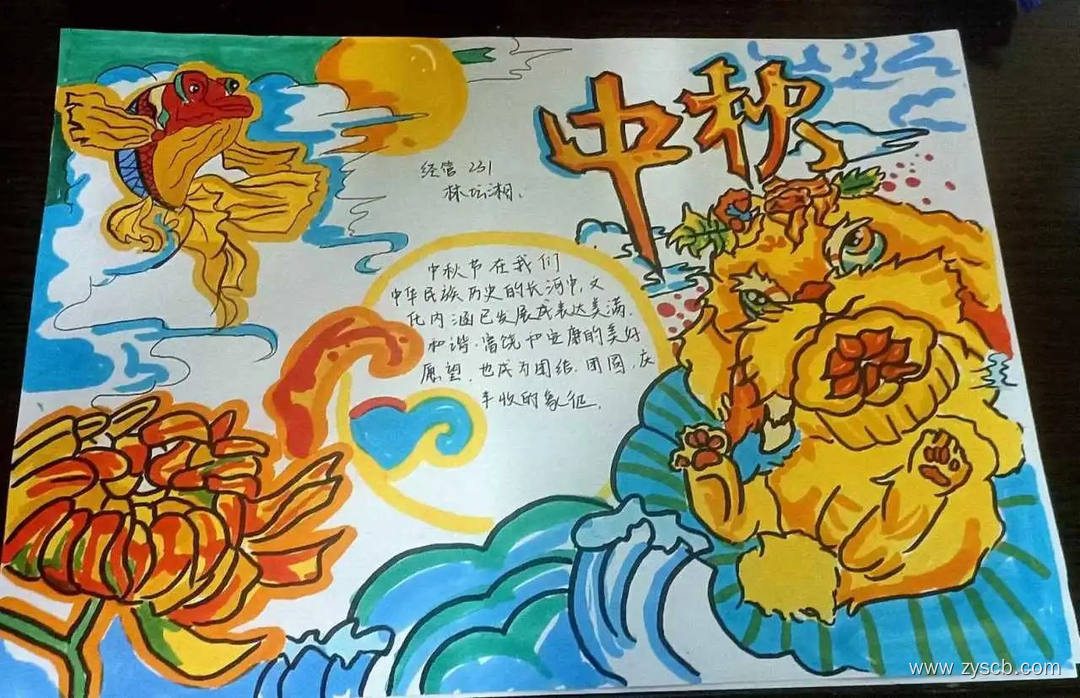 中秋
经管 231
林坛湘.
中秋节在我们
中华民族历史的长河中,文
化内涵已发展成表达美满.
和谐.富饶和安康的美好
愿望.也成为团结.团圆,庆
丰收的象征.
www.zyscb.com